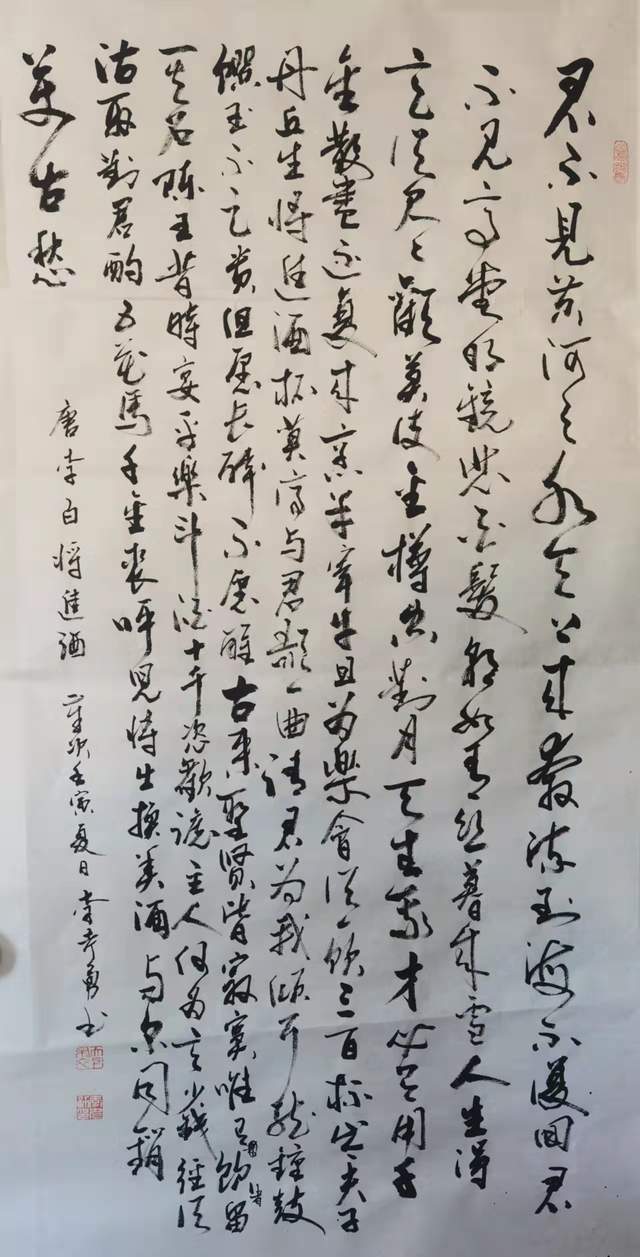 君不見黄河之水天上來奔流到海不復回君
不見高堂明鏡悲白髮朝如青絲暮成雪人生得
意須尽歡莫使金樽空對月天生我才必有用千
金散盡還復來烹羊宰牛且为樂會須一飲三百杯岑夫子
丹丘生將進酒杯莫停与君歌一曲請君为我傾耳聽鐘鼓
饌玉不足貴但愿長醉不愿醒古來聖賢皆寂寞唯有飲者留
其名陳王昔時宴平樂斗酒十千恣歡謔主人何为言少錢徑須
沽取對君酌五花馬千金裘呼兒將出換美酒与尔同銷
萬古愁
唐李白將進酒 歲次壬寅夏日李勇书